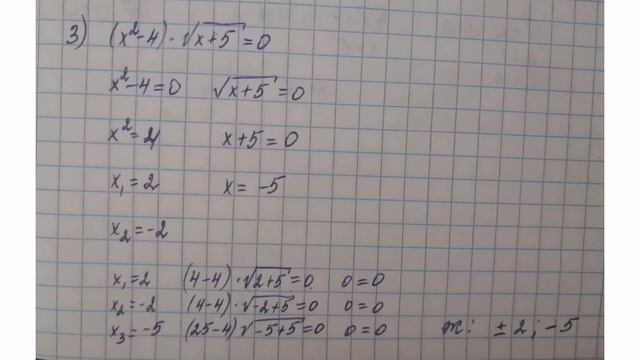 3) (x²-4)·√(x+5)=0
x²-4=0 √(x+5)=0
x²=4 x+5=0
x₁=2 x=-5
x₂=-2
x₁=2 (4-4)·√(2+5)=0 0=0
x₂=-2 (4-4)·√(-2+5)=0 0=0
x₃=-5 (25-4)√(-5+5)=0 0=0 m: ±2; -5